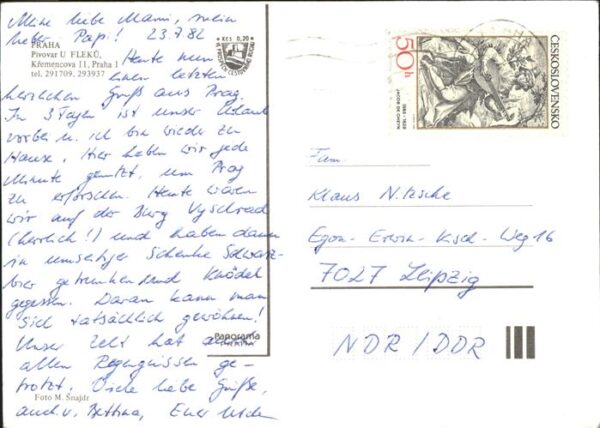 Meine liebe Mami, mein
lieber Papi! 23.7.82
PRAHA
Pivovar U FLEKŮ,
Křemencova 11, Praha 1
tel. 291709, 293937
Kčs 0,20
Heute nun
einen letzten
herzlichen Gruß aus Prag.
In 3 Tagen ist unser Urlaub
vorbei u. ich bin wieder zu
Hause. Hier haben wir jede
Minute genutzt, um Prag
zu erforschen. Heute waren
wir auf der Burg Vyšehrad
(herrlich!) und haben dann
in umseitiger Schenke Schwarz-
bier getrunken und Knödel
gegessen. Daran kann man
sich tatsächlich gewöhnen!
Unser Zelt hat
allen Regengüssen ge-
trotzt. Viele liebe Grüße,
auch v. Bettina, Eure
Panorama
Foto M. Šnajdr
50h
ČESKOSLOVENSKO
JACOB DE GHEYN
Fam.
Klaus Nitzsche
Egon-Erwin-Kisch-Weg 16
7027 Leipzig
NDR / DDR